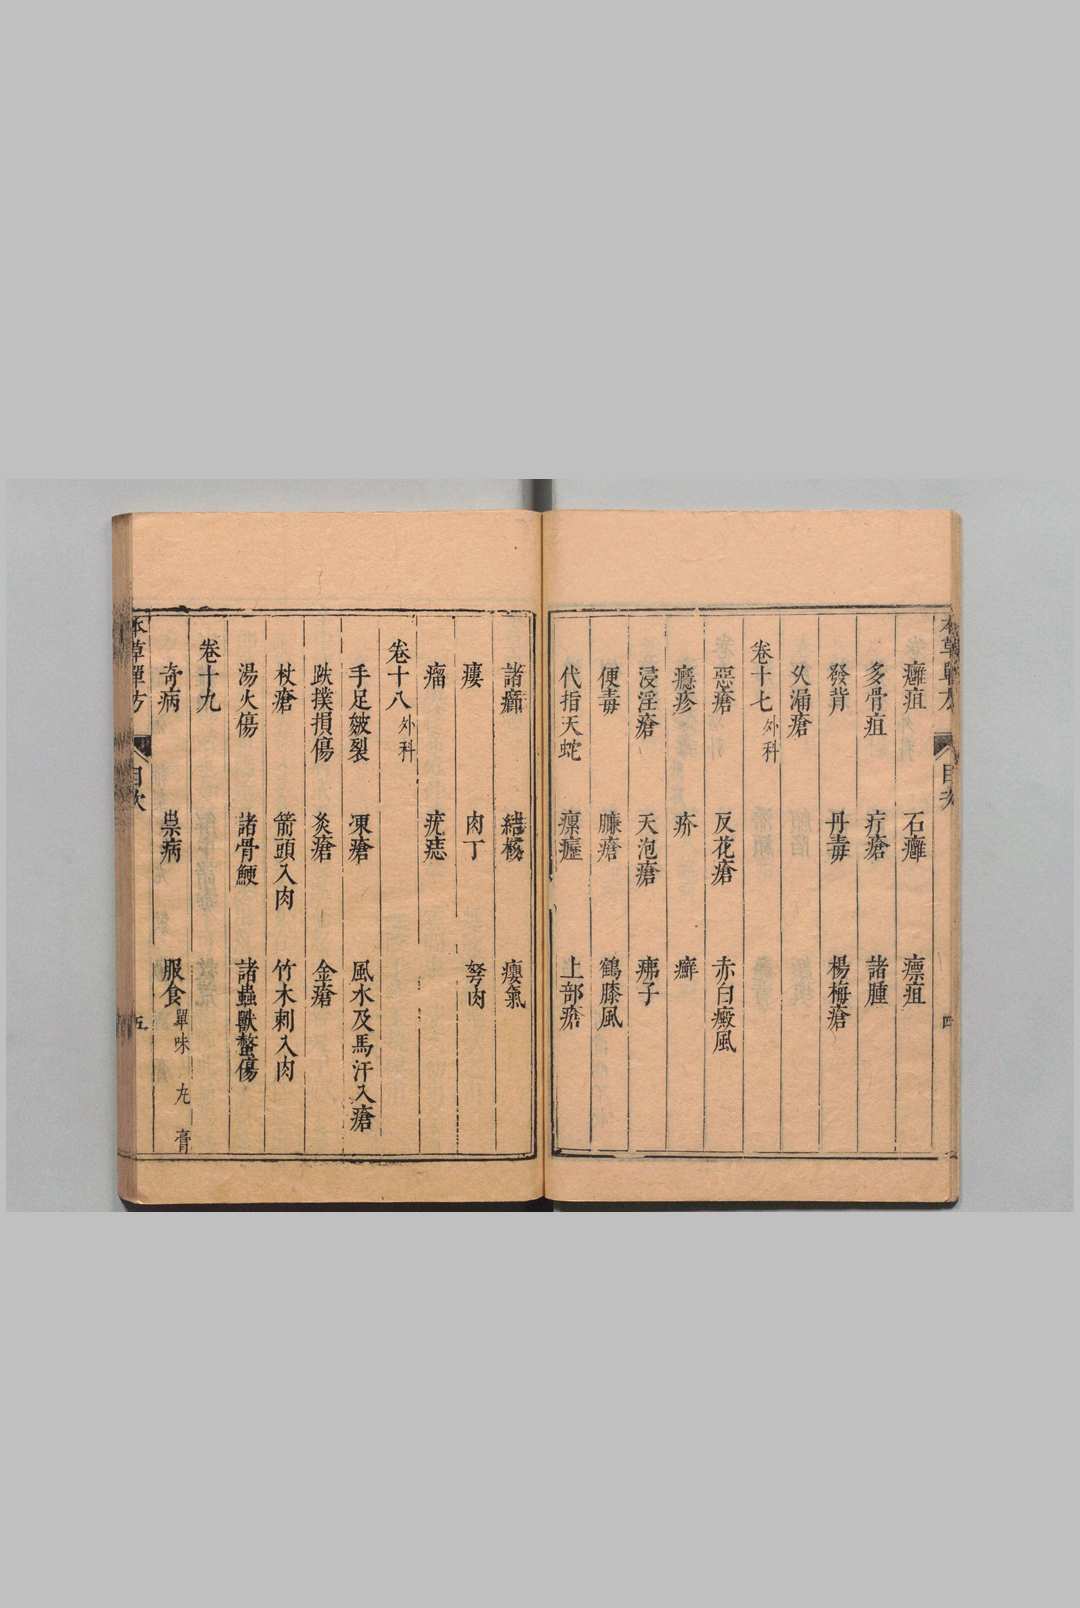 本草單方
目次
四
癰疽 石癰 瘭疽
多骨疽 疔瘡 諸腫
發背 丹毒 楊梅瘡
久漏瘡
卷十七 外科
惡瘡 反花瘡 赤白癜風
癮疹 疥 癬
浸淫瘡 天泡瘡 疿子
便毒 臁瘡 鶴膝風
代指天蛇 瘰癧 上部瘡
諸癤 結核 癭氣
瘻 肉丁 努肉
瘤 疣痣
卷十八 外科
手足皴裂 凍瘡 風水及馬汗入瘡
跌撲損傷 灸瘡 金瘡
杖瘡 箭頭入肉 竹木刺入肉
湯火傷 諸骨鯁 諸蟲獸螫傷
卷十九
奇病 祟病 服食 單味 九 膏
本草單方
目次
五